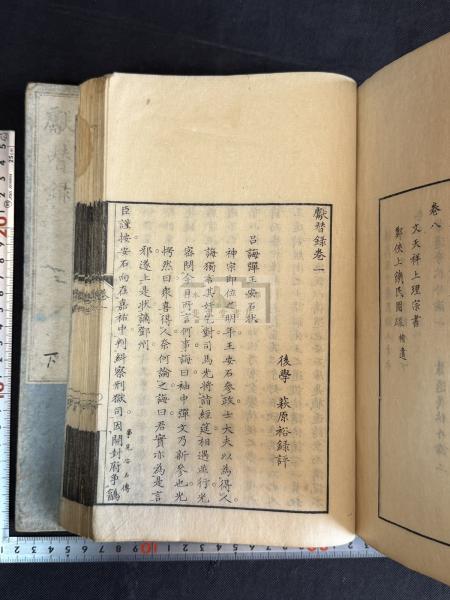 卷八
文天祥上理宗書
鄭俠上流民圖疏 補遺
獻替錄卷一
後學 萩原裕錄評
呂誨彈王安石狀
神宗即位之明年王安石參政士大夫以為得人
誨獨言其
對司馬光將詣經筵相遇並行光
密問今日所言何事誨曰袖中彈文乃新參也光
愕然曰衆喜得人奈何論之誨曰君實亦為是言
邪遂上是狀謫鄧州
事見
傳
臣謹按安石向在嘉祐中判糾察刑獄司因開封府爭鵪
獻替錄
下